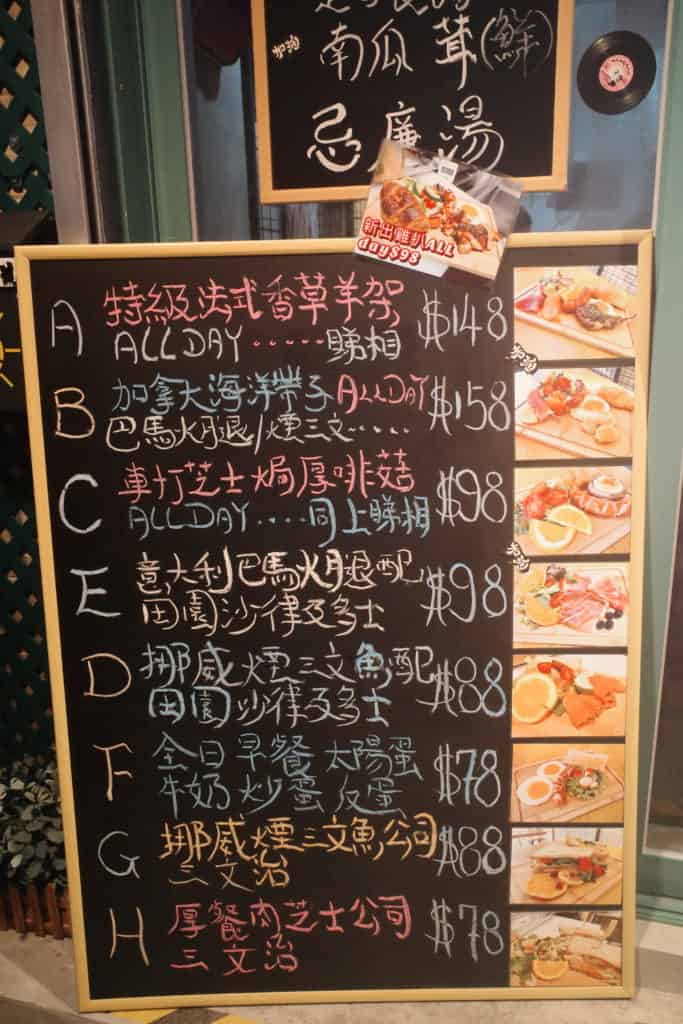 南瓜茸(鮮)
忌廉湯
新出雞扒ALL
day$98
A 特級法式香草羊架 $148
ALLDAY.....睇相
B 加拿大海洋帶子 ALLDAY $158
巴馬火腿/煙三文.....
C 車打芝士焗厚啡菇 $98
ALLDAY....同上睇相
E 意大利巴馬火腿配 $98
田園沙律及多士
D 挪威煙三文魚配 $88
田園沙律及多士
F 全日早餐太陽蛋 $78
牛奶炒蛋反蛋
G 挪威煙三文魚公司 $88
三文治
H 厚餐肉芝士公司 $78
三文治